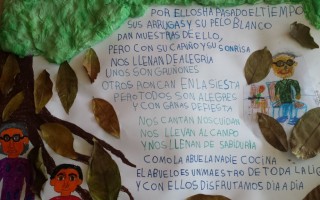 POR ELLOS HA PASADO EL TIEMPO
SUS ARRUGAS Y SU PELO BLANCO
DAN MUESTRAS DE ELLO,
PERO CON SU CARIÑO Y SU SONRISA
NOS LLENAN DE ALEGRIA
UNOS SON GRUÑONES
OTROS RONCAN EN LA SIESTA
PERO TODOS SON ALEGRES
Y CON GANAS DE FIESTA
NOS CANTAN NOS CUIDAN
NOS LLEVAN AL CAMPO
Y NOS LLENAN DE SABIDURÍA
COMO LA ABUELA NADIE COCINA
EL ABUELO ES UN MAESTRO DE TODA LA
Y CON ELLOS DISFRUTAMOS DIA A DIA